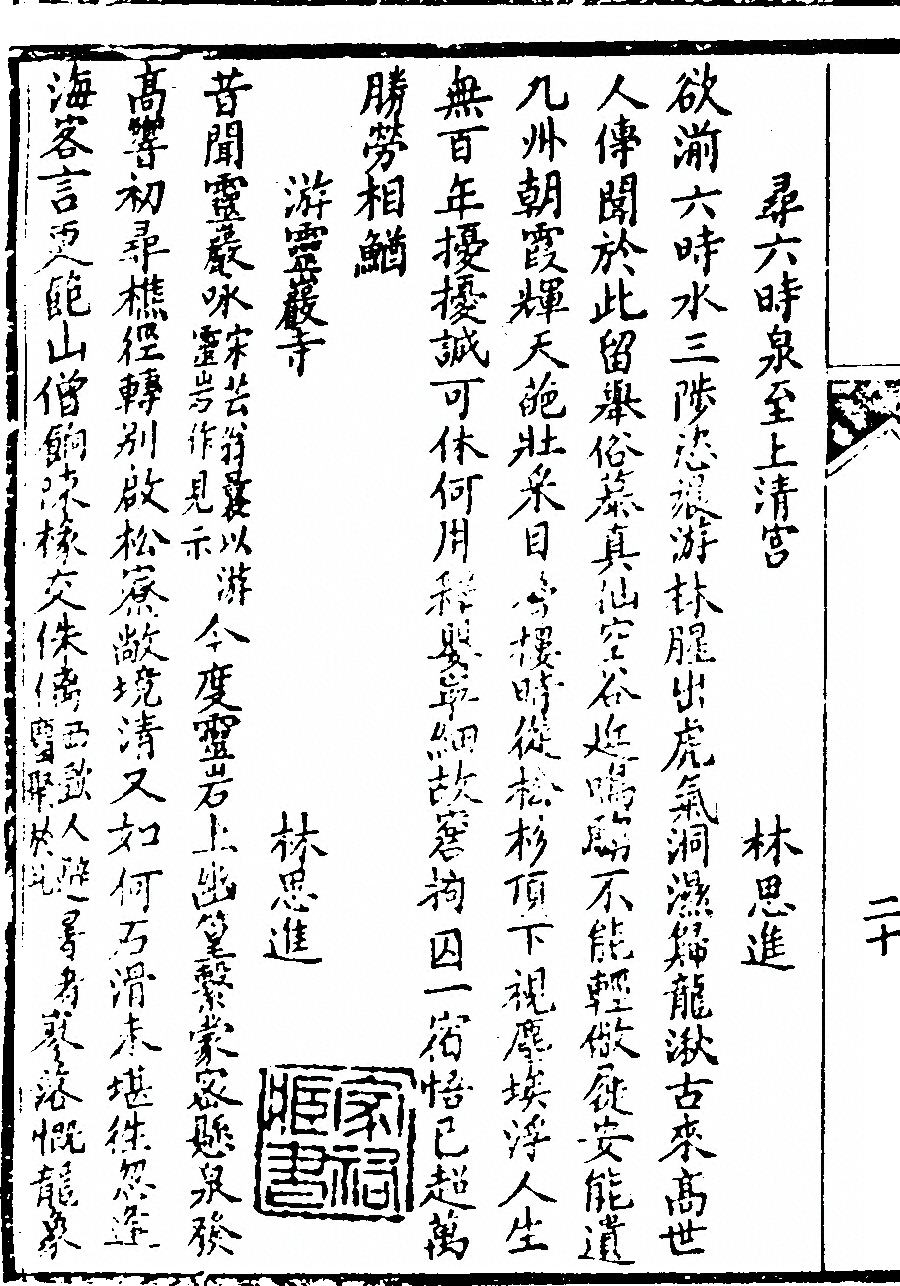 二十
尋六時泉至上清宮　林思進
欲溯六時水三陟恣浪游林腥出虎氣洞濕歸龍湫古來高世
人傳聞於此留舉俗慕真仙空谷遊鳴騶不能輕傲屣安能遺
九州朝霞輝天葩壯采目層樓時從松杉頂下視塵埃浮人生
無百年擾擾誠可休何用稱鬢眉細故窘拘囚一宿悟已超萬
勝勞相鰌
游靈巖寺　林思進
昔聞靈巖咏宋芸翁曩以游靈岩作見示今度靈岩上幽篁繫蒙密懸泉發
高響初尋樵徑轉別啟松寮敞境清又如何石滑未堪往忽逢
海客言更飽山僧餉陳椽交侏儒西歐人避暑聚於此尋者寥落慨龍象
家祠 書